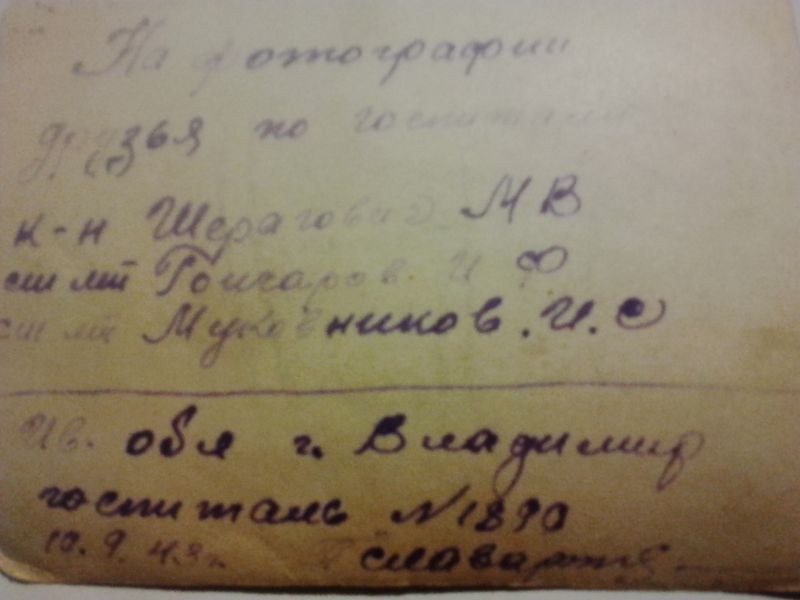 На фотографии
друзья по госпиталю
к-н Шерагович МВ
ст лт Гончаров И Ф
ст лт Муковников. И. С
Ив. обл г. Владимир
госпиталь N 1890
10. 9. 43 г.